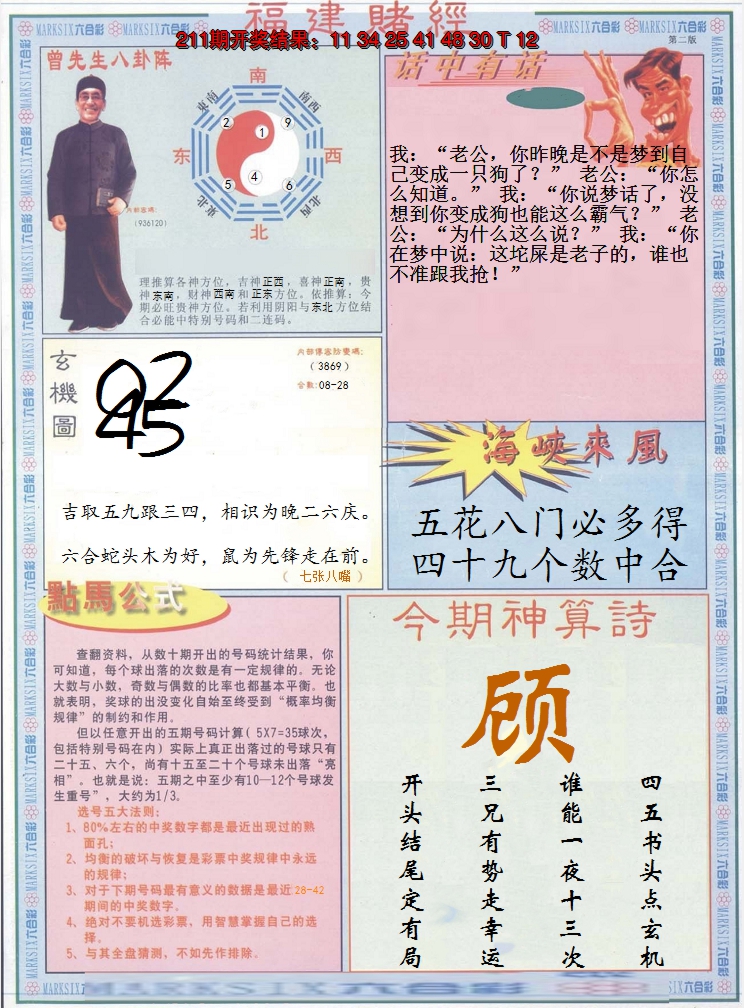 福建賭經
211期开奖结果：11 34 25 41 48 30 T 12
MARKSIX六合彩
第二版
曾先生八卦阵
南
东南
西南
2
1
9
东
西
5
4
6
东北
西北
北
内部密碼：
（936120）
理推算各神方位，吉神正西，喜神正南，贵
神东南，财神西南和正东方位。依推算：今
期必旺贵神方位。若利用阴阳与东北方位结
合必能中特别号码和二连码。
话中有话
我：“老公，你昨晚是不是梦到自
己变成一只狗了？” 老公：“你怎
么知道。” 我：“你说梦话了，没
想到你变成狗也能这么霸气？” 老
公：“为什么这么说？” 我：“你
在梦中说：这坨屎是老子的，谁也
不准跟我抢！”
玄機圖
02
45
内部傳密防雙碼：
（3869）
合數:08-28
吉取五九跟三四，相识为晚二六庆。
六合蛇头木为好，鼠为先锋走在前。
（ 七张八嘴 ）
海峡來風
五花八门必多得
四十九个数中合
點馬公式
查翻资料，从数十期开出的号码统计结果，你
可知道，每个球出落的次数是有一定规律的。无论
大数与小数，奇数与偶数的比率也都基本平衡。也
就表明，奖球的出没变化自始至终受到“概率均衡
规律”的制约和作用。
但以任意开出的五期号码计算（5X7=35球次，
包括特别号码在内）实际上真正出落过的号球只有
二十五、六个，尚有十五至二十个号球未出落“亮
相”。也就是说：五期之中至少有10—12个号球发
生重号”，大约为1/3。
选号五大法则：
1、80%左右的中奖数字都是最近出现过的熟
面孔；
2、均衡的破坏与恢复是彩票中奖规律中永远
的规律；
3、对于下期号码最有意义的数据是最近28-42
期间的中奖数字。
4、绝对不要机选彩票，用智慧掌握自己的选
择。
5、与其全盘猜测，不如先作排除。
今期神算詩
顾
四五书头点玄机
谁能一夜十三次
三兄有势走幸运
开头结尾定有局